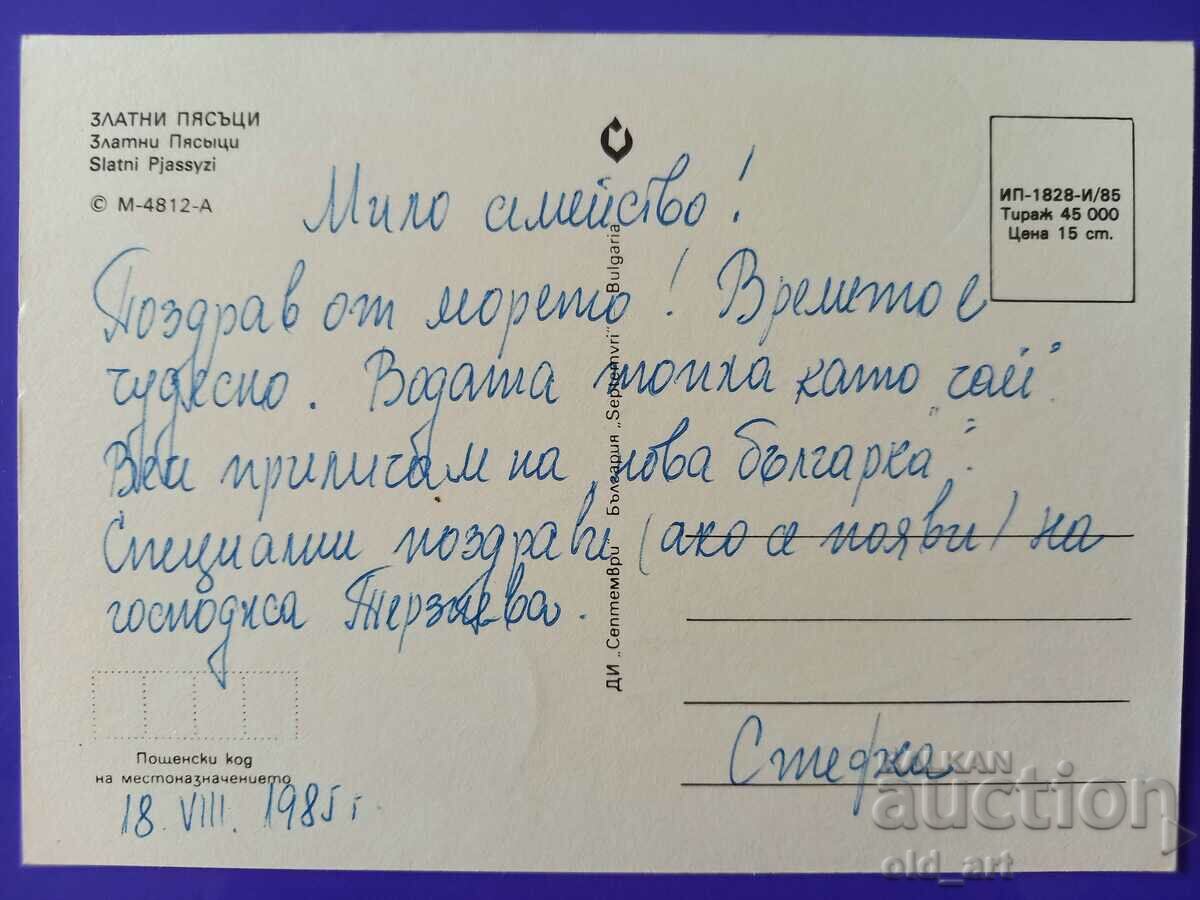 ЗЛАТНИ ПЯСЪЦИ
Златни Пясыци
Slatni Pjassyzi
© М-4812-А
ИП-1828-И/85
Тираж 45 000
Цена 15 ст.
Мило семейство!
Поздрав от морето! Времето е
чудесно. Водата топла като "чай".
Вече приличам на "нова българка".
Специални поздрави (ако се появи) на
господжа Терзиева.
ДИ „Септември" България „Septemvri" Bulgaria
Пощенски код
на местоназначението
18. VIII. 1985 г.
Стефка
BALKAN
auction
old_art